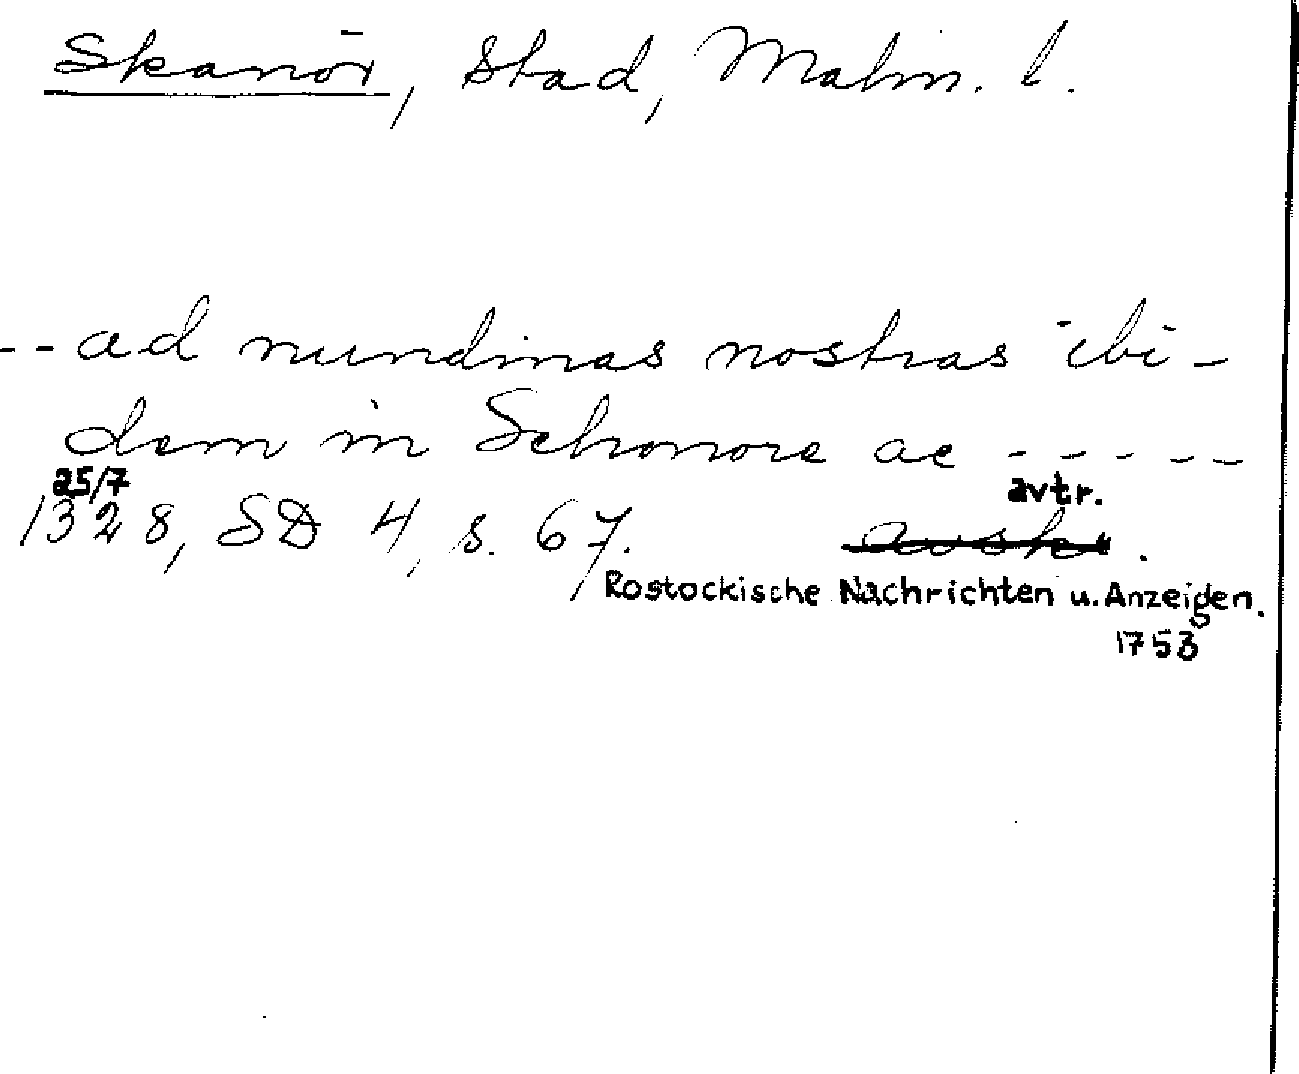 Skanör, stad, Malm. l.
-- ad nundinas nostras ibi-
dem in Schonore ac -----
25/7 avtr.
1328, SD 4, s. 67. avskr.
Rostockische Nachrichten u. Anzeigen.
1753